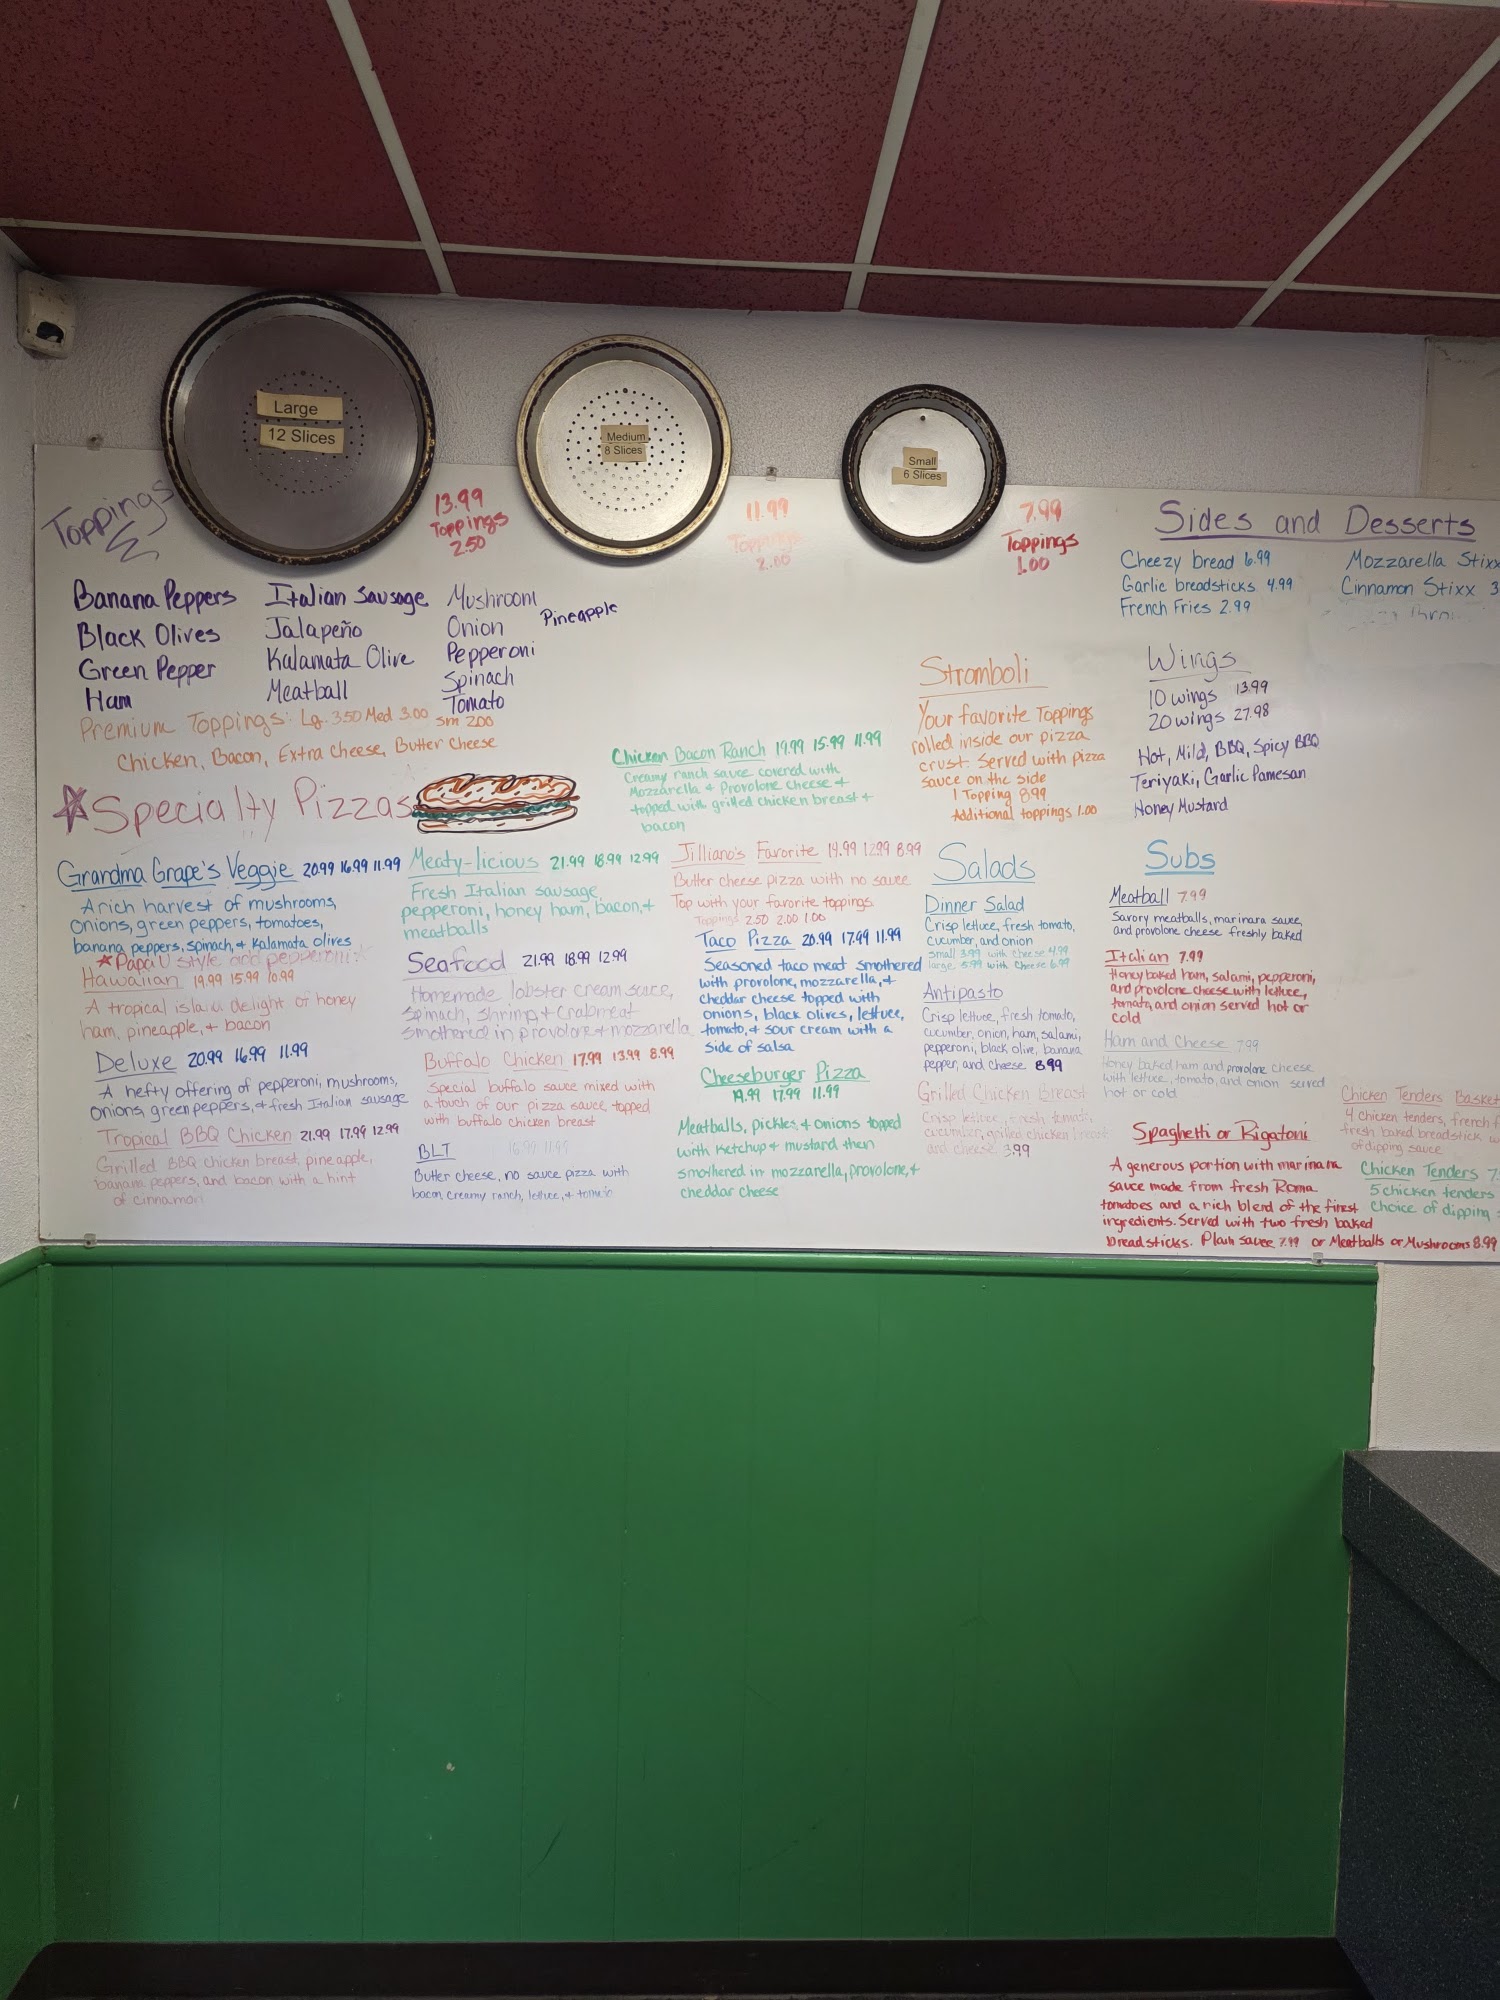 Large
12 Slices
Medium
8 Slices
Small
6 Slices
Toppings
13.99
Toppings
2.50
11.99
Toppings
2.00
7.99
Toppings
1.00
Banana Peppers
Black Olives
Green Pepper
Ham
Italian Sausage
Jalapeño
Kalamata Olive
Meatball
Mushroom
Onion
Pepperoni
Spinach
Tomato
Pineapple
Premium Toppings: Lg. 3.50 Med 3.00 Sm 2.00
Chicken, Bacon, Extra Cheese, Butter Cheese
Specialty Pizzas
Grandma Grape's Veggie 20.99 16.99 11.99
A rich harvest of mushrooms,
onions, green peppers, tomatoes,
banana peppers, spinach, + kalamata olives
Papa U style add pepperoni
Hawaiian 19.99 15.99 10.99
A tropical island delight of honey
ham, pineapple, + bacon
Deluxe 20.99 16.99 11.99
A hefty offering of pepperoni, mushrooms,
onions, green peppers, + fresh Italian sausage
Tropical BBQ Chicken 21.99 17.99 12.99
Grilled BBQ chicken breast, pineapple,
banana peppers, and bacon with a hint
of cinnamon
Meaty-licious 21.99 18.99 12.99
Fresh Italian sausage,
pepperoni, honey ham, bacon, +
meatballs
Seafood 21.99 18.99 12.99
Homemade lobster cream sauce,
spinach, shrimp, + crabmeat
smothered in provolone + mozzarella
Buffalo Chicken 17.99 13.99 8.99
special buffalo sauce mixed with
a touch of our pizza sauce, topped
with buffalo chicken breast
BLT 16.99 11.99
Butter cheese, no sauce pizza with
bacon, creamy ranch, lettuce, + tomato
Chicken Bacon Ranch 19.99 15.99 11.99
Creamy ranch sauce covered with
Mozzarella + Provolone Cheese +
topped with grilled chicken breast +
bacon
Jilliano's Favorite 14.99 12.99 8.99
Butter cheese pizza with no sauce
Top with your favorite toppings
Toppings 2.50 2.00 1.00
Taco Pizza 20.99 17.99 11.99
Seasoned taco meat smothered
with provolone, mozzarella, +
cheddar cheese topped with
onions, black olives, lettuce,
tomato, + sour cream with a
side of salsa
Cheeseburger Pizza
19.99 17.99 11.99
Meatballs, pickles, + onions topped
with ketchup + mustard then
smothered in mozzarella, provolone, +
cheddar cheese
Stromboli
Your favorite Toppings
rolled inside our pizza
crust. Served with pizza
sauce on the side
1 Topping 8.99
Additional toppings 1.00
Salads
Dinner Salad
Crisp lettuce, fresh tomato,
cucumber, and onion
small 3.99 with cheese 4.99
large 5.99 with cheese 6.99
Antipasto
Crisp lettuce, fresh tomato,
cucumber, onion, ham, salami,
pepperoni, black olive, banana
pepper, and cheese 8.99
Grilled Chicken Breast
Crisp lettuce, fresh tomato,
cucumber, grilled chicken breast
and cheese 3.99
Sides and Desserts
Cheezy bread 6.99
Garlic breadsticks 4.99
French Fries 2.99
Mozzarella Stixx
Cinnamon Stixx 3
Wings
10 wings 13.99
20 wings 27.98
Hot, Mild, BBQ, Spicy BBQ
Teriyaki, Garlic Pamesan
Honey Mustard
Subs
Meatball 7.99
Savory meatballs, marinara sauce,
and provolone cheese freshly baked
Italian 7.99
Honey baked ham, salami, pepperoni,
and provolone cheese with lettuce,
tomato, and onion served hot or
cold
Ham and Cheese 7.99
Honey baked ham and provolone cheese
with lettuce, tomato, and onion served
hot or cold
Spaghetti or Rigatoni
A generous portion with marinara
sauce made from fresh Roma
tomatoes and a rich blend of the finest
ingredients. Served with two fresh baked
breadsticks. Plain sauce 7.99 or Meatballs or Mushrooms 8.99
Chicken Tenders Basket
4 chicken tenders, french f
fresh baked breadstick w
of dipping sauce
Chicken Tenders 7.
5 chicken tenders
Choice of dipping